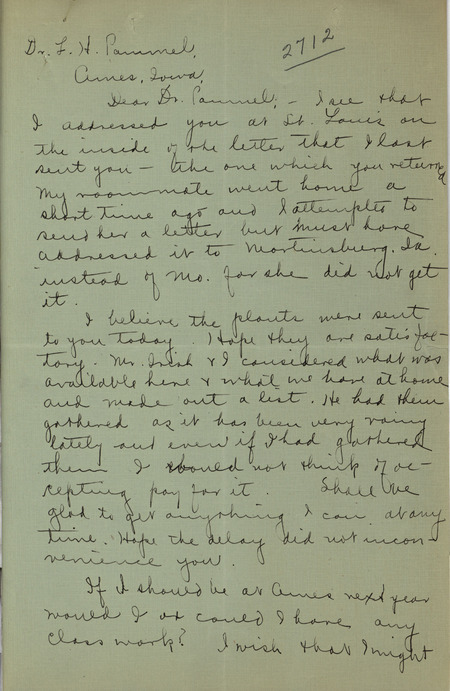 2712
Dr. L. H. Pammel,
Ames, Iowa,
Dear Dr. Pammel; - I see that
I addressed you at St. Louis on
the inside of the letter that I last
sent you — the one which you returned
My roommate went home a
short time ago and I attempted to
send her a letter but must have
addressed it to Martinsburg, Ia.
instead of Mo. for she did not get
it.
I believe the plants were sent
to you today. Hope they are satisfac-
tory. Mr. Irish & I considered what was
available here & what we have at home
and made out a list. He had them
gathered as it has been very rainy
lately and even if I had gathered
them I should not think of ac-
cepting pay for it. Shall be
glad to get anything I can at any
time. Hope the delay did not incon-
venience you.
If I should be at Ames next year
would I or could I have any
class work? I wish that I might